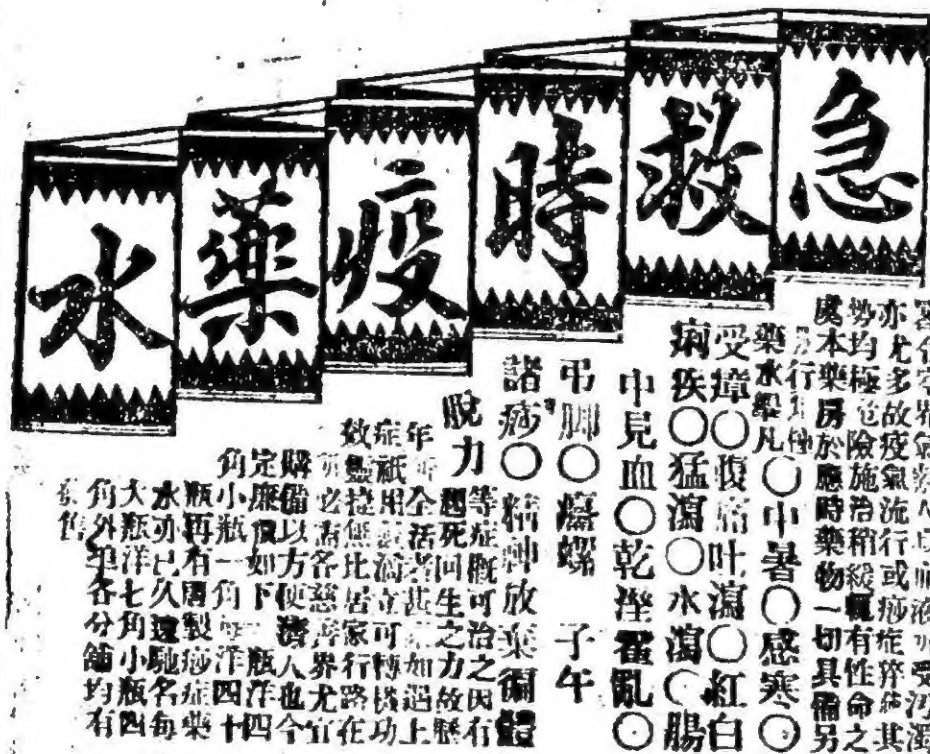 急救時疫藥水
亦尤多故疫氣流行或痧症猝病其
勢均極危險施治稍緩輒有性命之
處本藥房於應時藥物一切具備另
藥水舉凡〇中暑〇感寒〇
受瘴〇腹痛吐瀉〇紅白
痢疾〇猛瀉〇水瀉〇腸
中見血〇乾溼霍亂〇
弔脚〇癟螺 子午
諸痧〇精神放棄徧體
脫力 等症概可治之因有
起死回生之力故歷
年 全活者甚 如遇上
症祇用 滴立可轉機功
效 捷 比居家行路在
必需各慈善界尤宜
購備以方便濟人也今
定廉價如下 瓶洋四
角小瓶一角每洋四十
瓶再有 製痧症藥
水亦已久遠馳名每
大瓶洋七角小瓶四
角外埠各分舖均有
售